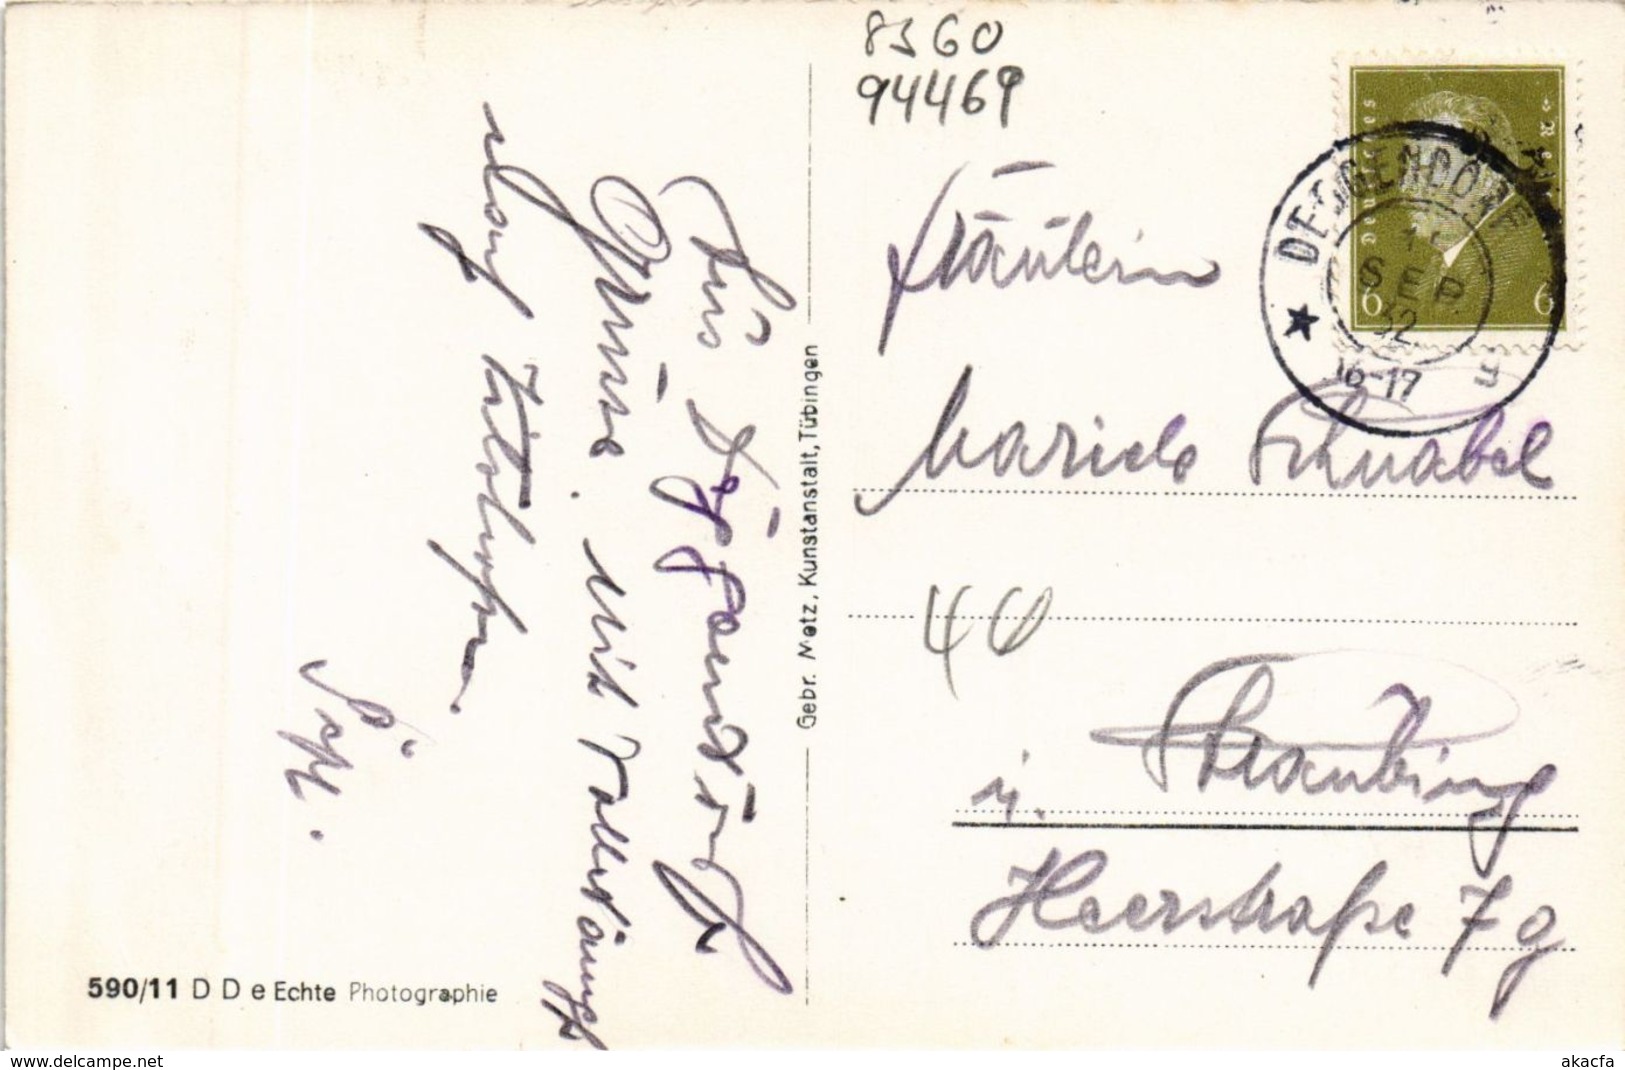 8360
94469
Deutsches Reich
6 6
DEGGENDORF
SEP.
32
16-17
Fräulein
Mariele Schnabel
40
i. Straubing
Heerstraße 7 g
Aus Deggendorf
Grüsse. mit
nach
Sepp.
Gebr. Metz, Kunstanstalt, Tübingen
590/11 D D e Echte Photographie
delcampe.net
akacfa